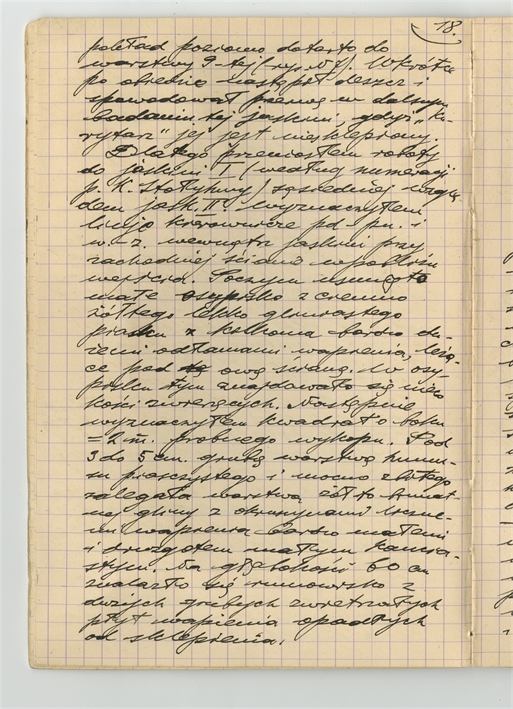 18.
pokład poziomo dotarto do
warstwy 9-tej (rys. N 7). Wkrótce
po obiedzie nastąpił deszcz i
spowodował przerwę w dalszym
badaniu tej jaskini, gdyż „ko-
rytarz" jej jest niesklepiony.
Dlatego przeniosłem roboty
do jaskini I (według numeracji
p. K. Stołyhwy) sąsiedniej wzglę
dem jask. II. Wyznaczyłem
linję kierowniczą pd.-pn. i
w.-z. wewnątrz jaskini przy
zachodniej ścianie w pobliżu
wejścia. Poczym usunięto
małe osypisko z ciemno
żółtego lekko gliniastego
piasku z kilkoma bardzo du-
żemi odłamami wapienia, leżą-
ce pod tą ową ścianą. W osy-
pisku tym znajdowało się nieco
kości zwierzęcych. Następnie
wyznaczyłem kwadrat o boku
= 2 m. próbnego wykopu. Pod
3 do 5 cm. grubą warstwą humu-
su piaszczystego i mocno zbitego
zalegała warstwa żółto-brunat-
nej gliny z okruchami
mi wapienia bardzo małemi
i druzgotem małym kamie-
stym. Na głębokości 60 cm
znalazło się rumowisko z
dużych grubych zwietrzałych
płyt wapienia opadłych
od sklepienia.